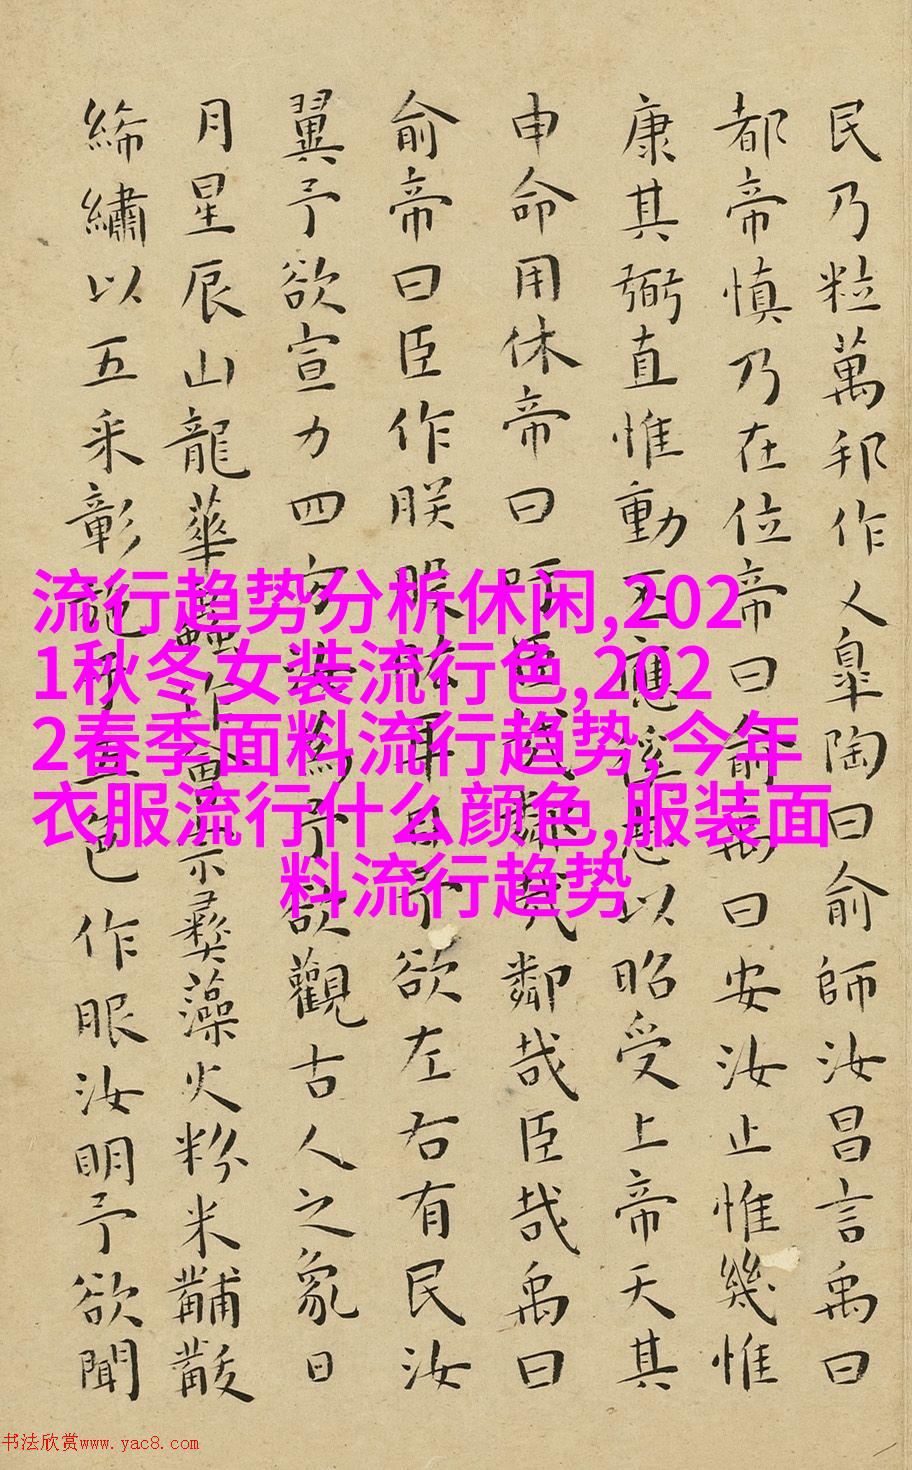 民乃粒萬邦作乂皐陶曰俞師汝昌言禹曰
都帝慎乃在位帝曰俞禹曰安汝止惟幾惟
康其弼直惟動丕應徯志以昭受上帝天其
申命用休帝曰吁臣哉鄰哉鄰哉臣哉禹曰
俞帝曰臣作朕股肱耳目予欲左右有民汝
翼予欲宣力四方汝為予欲觀古人之象日
月星辰山龍華蟲作會宗彝藻火粉米黼黻
絺繡以五采彰施于五色作服汝明予欲聞
流行趋势分析休闲,202
1秋冬女装流行色,202
2春季面料流行趋势,今年
衣服流行什么颜色,服装面
料流行趋势
书法欣赏www.yac8.com